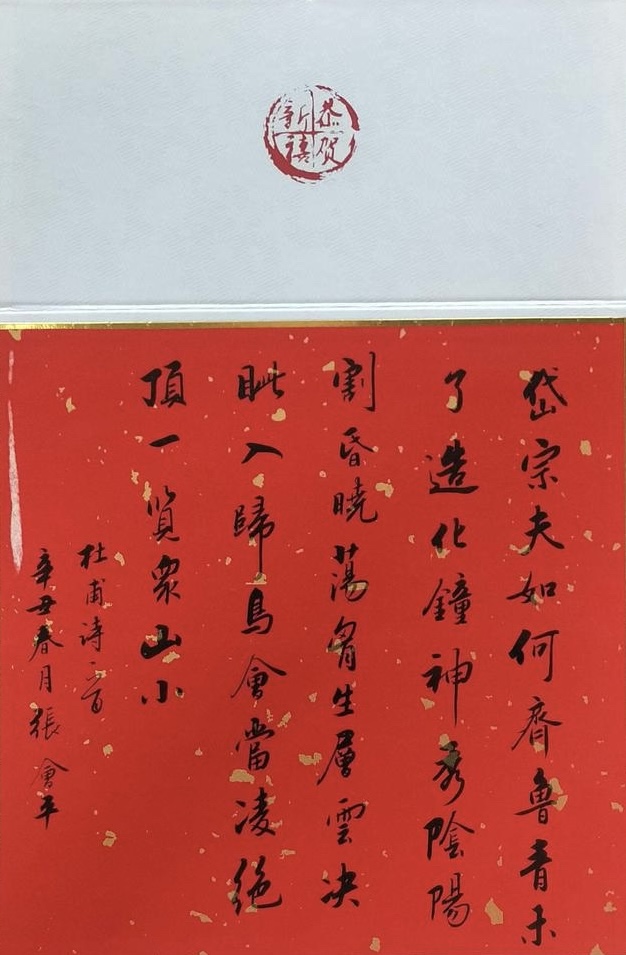 恭贺
新禧
岱宗夫如何齊魯青未
了造化鐘神秀陰陽
割昏曉蕩胷生層雲决
眦入歸鳥會當凌絶
頂一覧衆山小
杜甫詩一首
辛丑春月張會平